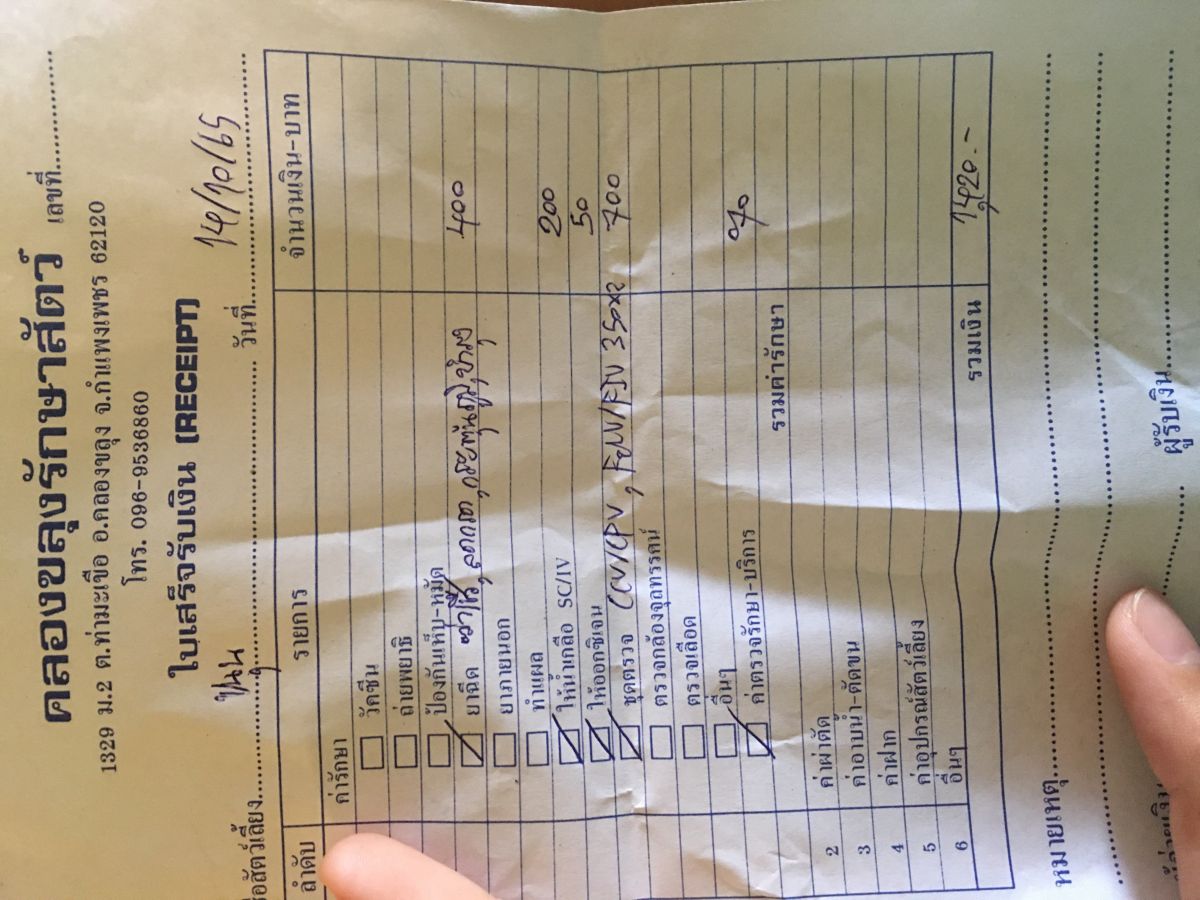 คลองขลุงรักษาสัตว์ เลขที่
1329 ม.2 ต.ท่ามะเขือ อ.คลองขลุง จ.กำแพงเพชร 62120
โทร. 096-9536860
ใบเสร็จรับเงิน (RECEIPT)
ชื่อสัตว์เลี้ยง ขนุน วันที่ 14/10/65
ลำดับ รายการ จำนวนเงิน-บาท
ค่ารักษา
วัคซีน
ถ่ายพยาธิ
ป้องกันเห็บ-หมัด
ยาฉีด ฆ่าเชื้อ, ลดกรด, กระตุ้นภูมิ, บำรุง 400
ยาภายนอก
ทำแผล
ให้น้ำเกลือ SC/IV 200
ให้ออกซิเจน 50
ชุดตรวจ CCV/CPV, FeLV/FIV 350x2 700
ตรวจกล้องจุลทรรศน์
ตรวจเลือด
อื่นๆ
ค่าตรวจรักษา-บริการ 70
รวมค่ารักษา
2 ค่าผ่าตัด
3 ค่าอาบน้ำ-ตัดขน
4 ค่าฝาก
5 ค่าอุปกรณ์สัตว์เลี้ยง
6 อื่นๆ
รวมเงิน 1,420.-
หมายเหตุ
ผู้จ่ายเงิน ผู้รับเงิน